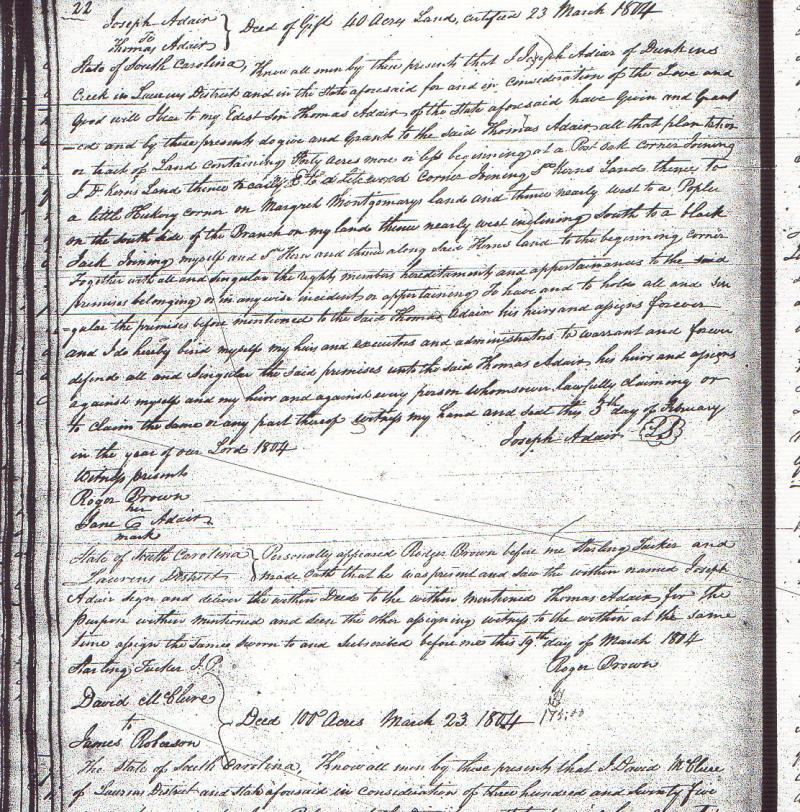 22
Joseph Adair
To
Thomas Adair } Deed of Gift 40 Acres Land, certified 23 March 1804
State of South Carolina, Know all men by these presents that I Joseph Adair of Dunkins
Creek in Laurens District and in the State aforesaid for and in consideration of the Love and
Good will I bear to my Eldest Son Thomas Adair of the State aforesaid have Given and Grant
-ed and by these presents do give and Grant to the said Thomas Adair all that plantation
or tract of Land containing Forty acres more or less beginning at a Post oak corner Joining
Land thence to a corner Joining Land thence to
a little Hickory corner on Margret Montgomarys land and thence nearly west to a Popler
on the south side of the Branch on my land thence nearly west inclining South to a black
Jack Joining myself and and thence along said Land to the beginning corner
Together with all and singular the rights members hereditaments and appertainances to the said
premises belonging or in any wise incident or appertaining To have and to hold all and sin
-gular the premises before mentioned to the said Thomas Adair his heirs and assigns forever
and I do hereby bind myself my heirs and executors and administrators to warrant and forever
defend all and Singular the said premises unto the said Thomas Adair his heirs and assigns
against myself and my heirs and against every person whomsoever lawfully claiming or
to claim the same or any part thereof witness my hand and seal this 3th day of February
in the year of our Lord 1804 Joseph Adair LS
Witness present
Roger Brown
her
Jane Adair
mark
State of South Carolina } Personally appeared Rodger Brown before me Starling Tucker and
Laurens District } made oath that he was present and saw the within named Joseph
Adair sign and deliver the within Deed to the within mentioned Thomas Adair for the
purpose within mentioned and seen the other assigning witness to the within at the same
time assign the same Sworn to and Subscribed before me this 19th day of March 1804
Starling Tucker J.P. Roger Brown
David McClure
to
James Roberson } Deed 100 Acres March 23 1804
The State of South Carolina, Know all men by these presents that I David McClure
of Laurens District and State aforesaid in consideration of three hundred and twenty five